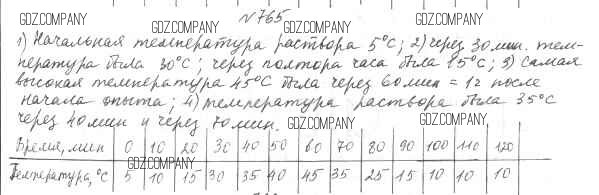 GDZ.COMPANY GDZ.COMPANY GDZ.COMPANY
№765
1) Начальная температура раствора 5°С; 2) через 30 мин. тем-
пература была 30°С; через полтора часа была 15°С; 3) самая
высокая температура 45°С была через 60 мин = 1ч после
начала опыта; 4) температура раствора была 35°С
через 40 мин и через 70 мин.
GDZ.COMPANY GDZ.COMPANY GDZ.COMPANY
GDZ.COMPANY GDZ.COMPANY
Время, мин 0 10 20 30 40 50 60 70 80 90 100 110 120
Температура, °С 5 10 15 30 35 40 45 35 25 15 10 10 10
GDZ.COMPANY GDZ.COMPANY GDZ.COMPANY